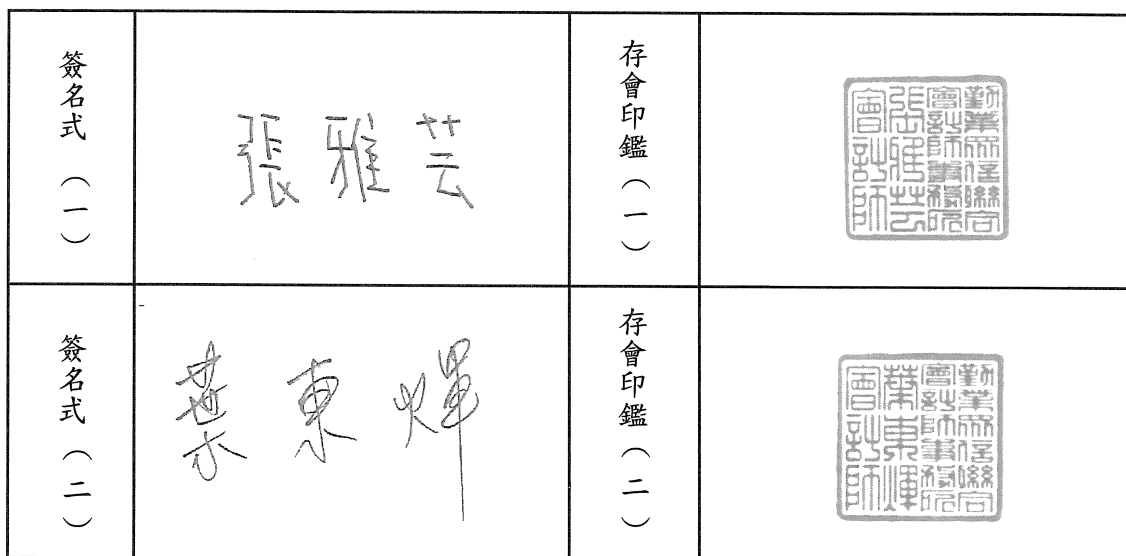 簽名式（一）
張雅芸
存會印鑑（一）
勤業眾信聯合
會計師事務所
張雅芸
會計師
簽名式（二）
葉東煇
存會印鑑（二）
勤業眾信聯合
會計師事務所
葉東煇
會計師